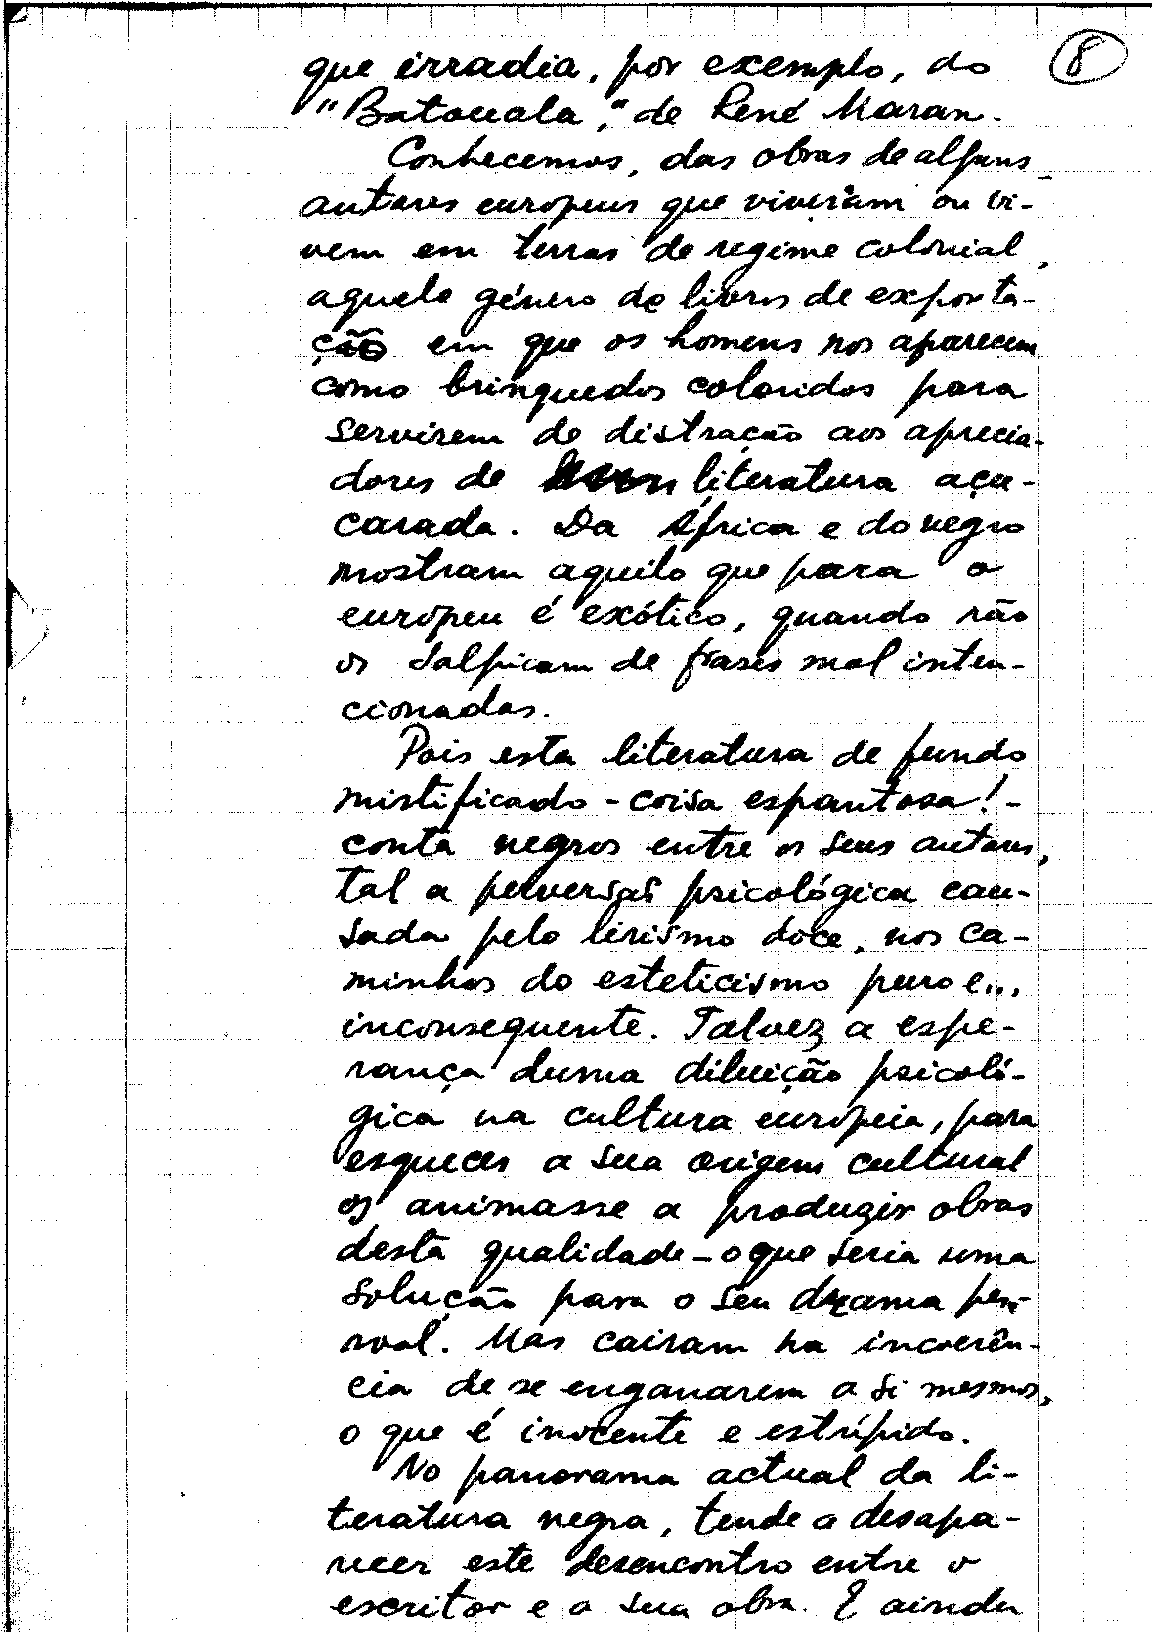 8
que irradia, por exemplo, do
"Batouala", de René Maran.
Conhecemos, das obras de alguns
autores europeus que viveram ou vi-
vem em terras de regime colonial,
aquele género de livros de exporta-
ção em que os homens nos aparecem
como brinquedos coloridos para
servirem de distração aos aprecia-
dores de literatura açu-
carada. Da África e do negro
mostram aquilo que para o
europeu é exótico, quando não
os salpicam de frases mal inten-
cionadas.
Pois esta literatura de fundo
mistificado - coisa espantosa! -
conta negros entre os seus autores,
tal a perversão psicológica cau-
sada pelo lirismo doce, nos ca-
minhos do esteticismo puro e...
inconsequente. Talvez a espe-
rança duma diluição psicoló-
gica na cultura europeia, para
esquecer a sua origem cultural
os animasse a produzir obras
desta qualidade - o que seria uma
solução para o seu drama pes-
soal. Mas cairam na incoerên-
cia de se enganarem a si mesmos,
o que é inocente e estúpido.
No panorama actual da li-
teratura negra, tende a desapa-
recer este desencontro entre o
escritor e a sua obra. E ainda